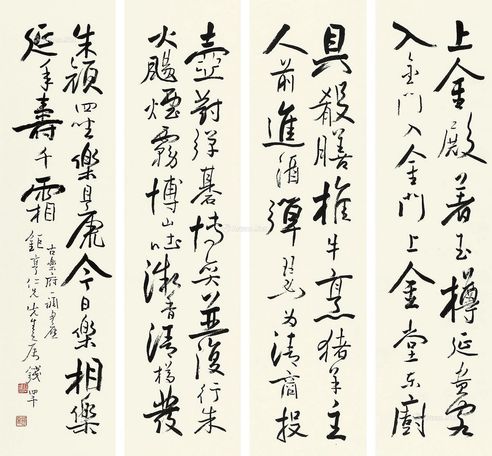 上金殿著玉樽延貴客
入金門入金門上金堂东廚
具殽膳椎牛烹猪羊主
人前進酒彈瑟为清商投
壺對彈碁博奕並復行朱
火颺煙霧博山吐微香清樽發
朱顏四坐樂且康今日樂相樂
延年壽千霜
古樂府一
仁兄先生屬 錢